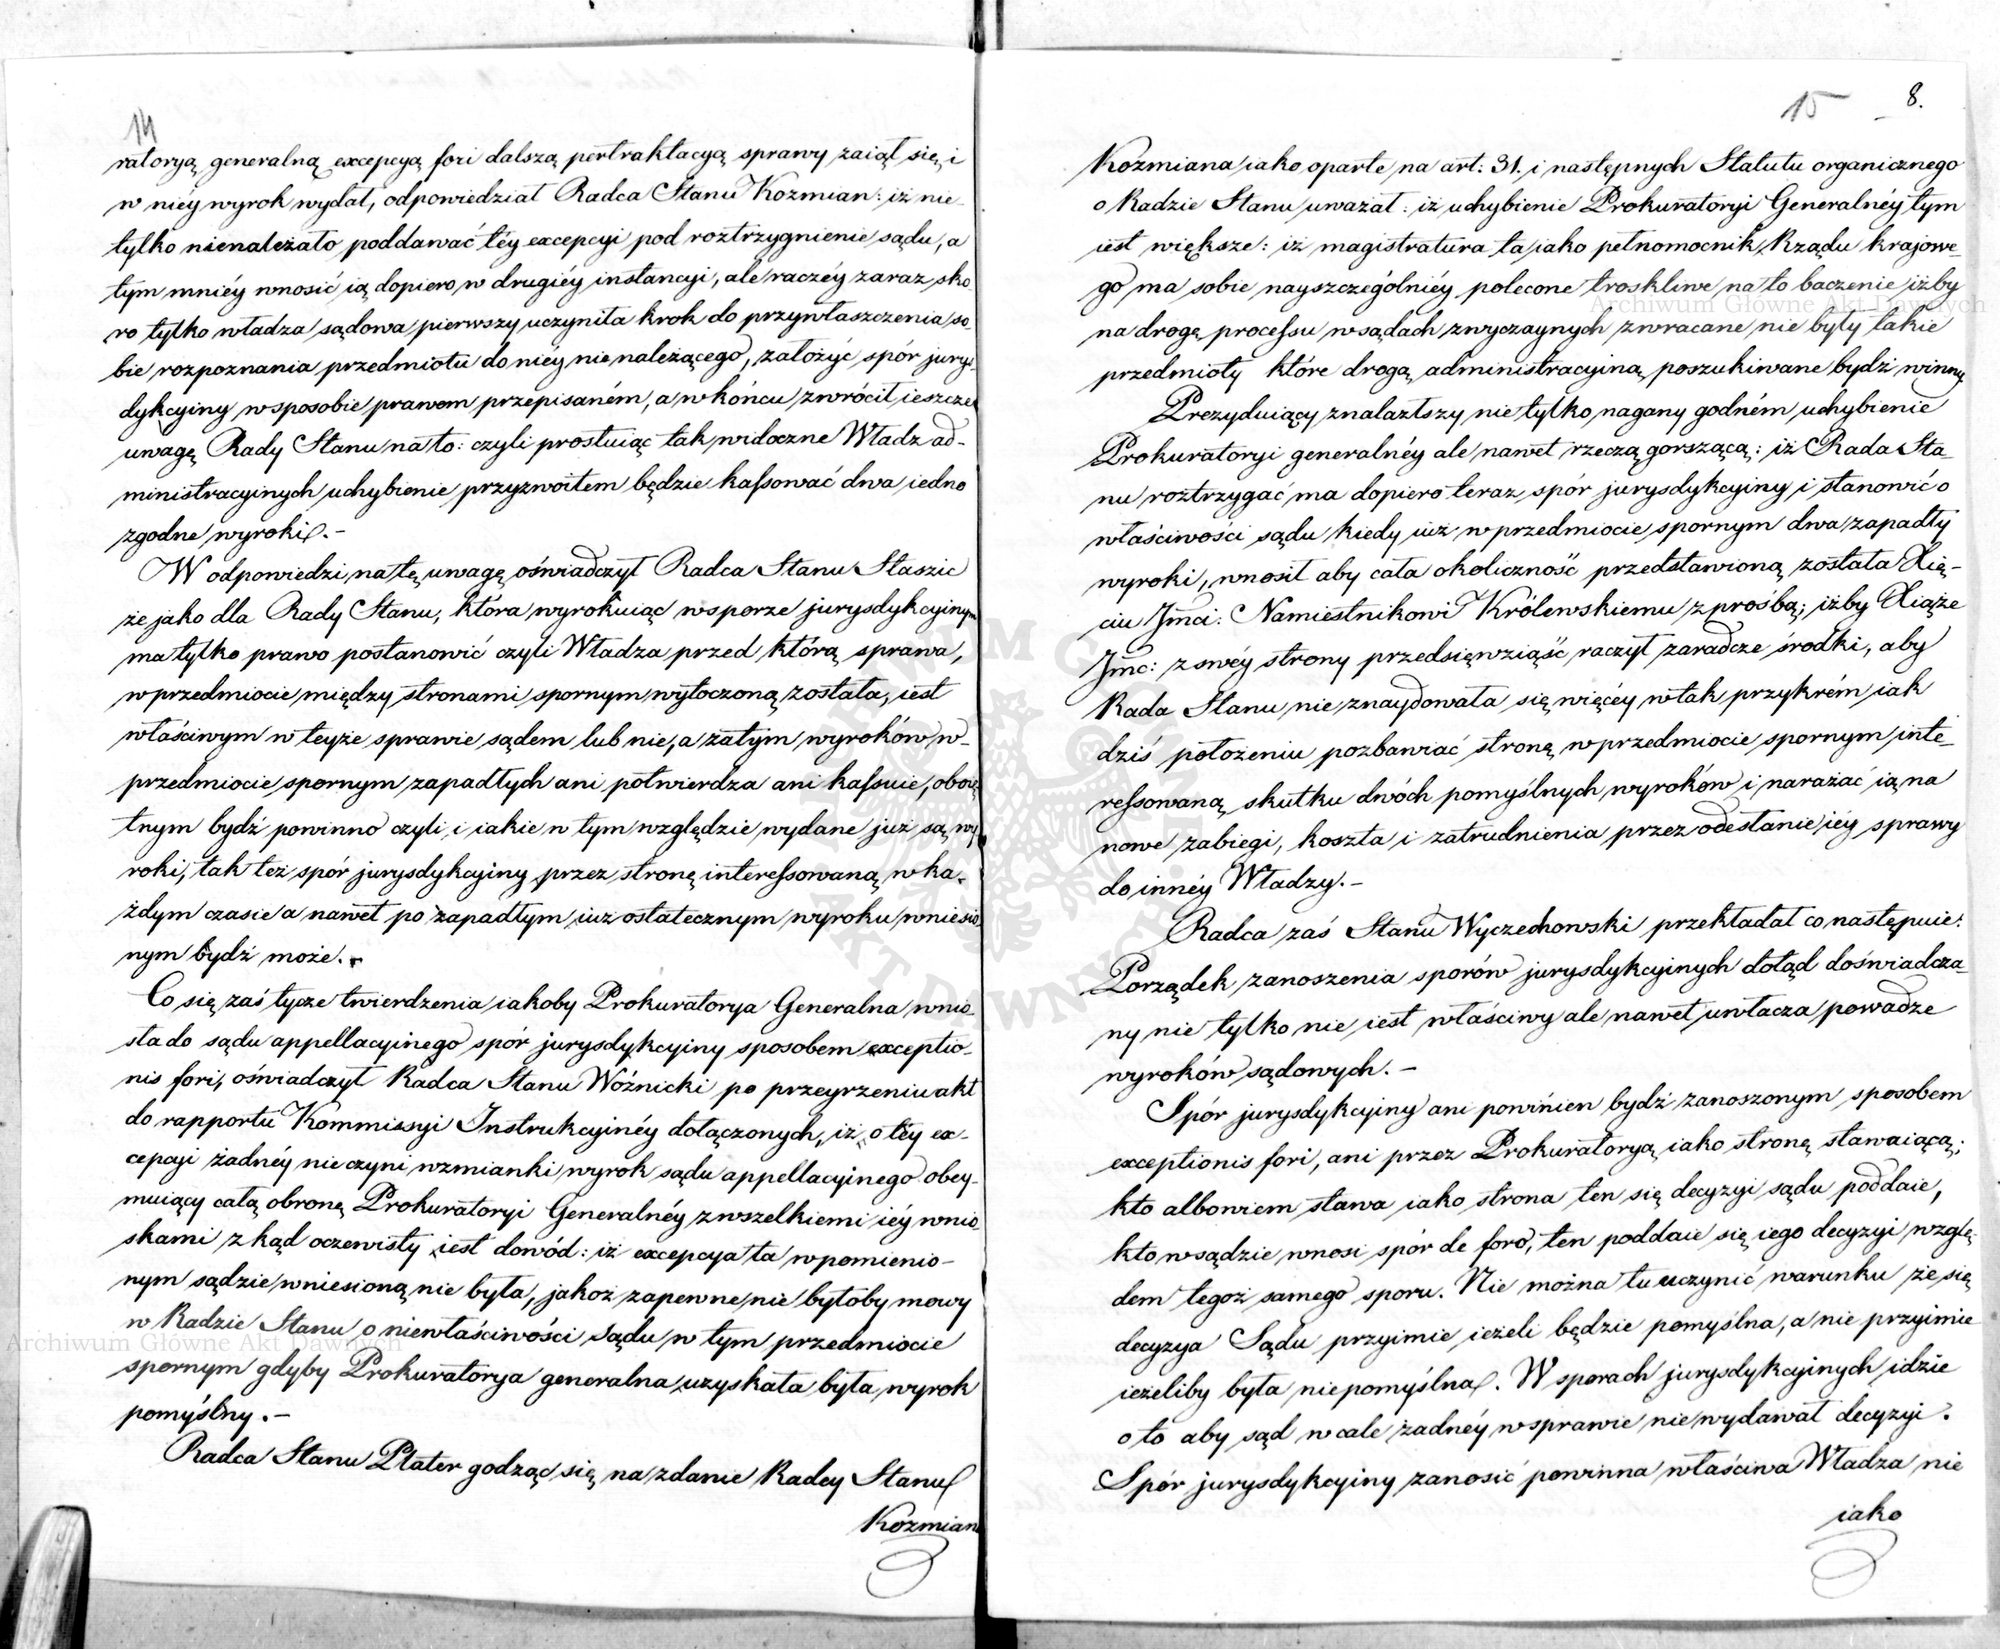 14
ratoryą generalną excepcyą fori dalszą pertraktacyą sprawy zaiął się i
w niéy wyrok wydał, odpowiedział Radca Stanu Kozmian: iż nie
tylko nienależało poddawać téy excepcyi pod roztrzygnienie sądu, a
tym mniéy wnosić ią dopiero w drugiéy instancyi, ale raczéy zaraz sko
ro tylko władza sądowa pierwszy uczyniła krok do przywłaszczenia so
bie rozpoznania przedmiotu do niéy nie należącego, założyć spór jurys
dykcyiny w sposobie prawem przepisaném, a w końcu zwrócił ieszcze
uwagę Rady Stanu na to: czyli prostuiąc tak widoczne Władz ad-
ministracyinych uchybienie przyzwoitem będzie kassować dwa iedno
zgodne wyroki. -
W odpowiedzi na tę uwagę oświadczył Radca Stanu Staszic
że jako dla Rady Stanu, która wyrokuiąc w sporze jurysdykcyinym
ma tylko prawo postanowić czyli Władza przed którą sprawa,
w przedmiocie między stronami spornym wytoczoną została, iest
właściwym w teyże sprawie sądem lub nie, a zatym wyroków w-
przedmiocie spornym zapadłych ani potwierdza ani kassuie, oboię
tnym bydź powinno czyli i iakie w tym względzie wydane już są wy
roki, tak też spór jurysdykcyiny przez stronę interessowaną w ka-
żdym czasie a nawet po zapadłym iuż ostatecznym wyroku wniesio
nym bydź może. -
Co się zaś tycze twierdzenia iakoby Prokuratorya Generalna wnio
sła do sądu appellacyinego spór jurysdykcyiny sposobem exceptio-
nis fori, oświadczył Radca Stanu Woźnicki po przeyrzeniu akt
do rapportu Kommissyi Instrukcyinéy dołączonych, iż o téy ex-
cepcyi żadnéy nie czyni wzmianki wyrok sądu appellacyinego obey-
muiący całą obronę Prokuratoryi Generalnéy z wszelkiemi iéy wnio
skami z kąd oczewisty iest dowód: iż excepcya ta w pomienio-
nym sądzie wniesioną nie była, jakoż zapewne nie byłoby mowy
w Radzie Stanu o niewłaściwości Sądu w tym przedmiocie
spornym gdyby Prokuratorya generalna uzyskała była wyrok
pomyślny. -
Radca Stanu Plater godząc się na zdanie Radcy Stanu
Kozmian
15 8.
Kozmiana iako oparte na art: 31. i następnych Statutu organicznego
o Radzie Stanu uważał: iż uchybienie Prokuratoryi Generalnéy tym
iest większe: iż magistratura ta iako pełnomocnik Rządu krajowe-
go ma sobie nayszczególniéy polecone troskliwe na to baczenie iżby
na drogę processu w sądach zwyczaynych zwracane nie były takie
przedmioty które drogą administracyiną poszukiwane bydź winny
Prezyduiący znalazłszy nie tylko nagany godném uchybienie
Prokuratoryi generalnéy ale nawet rzeczą gorszącą: iż Rada Sta
nu roztrzygać ma dopiero teraz spór jurysdykcyiny i stanowić o
właściwości sądu kiedy iuż w przedmiocie spornym dwa zapadły
wyroki, wnosił aby cała okoliczność przedstawioną została Xię-
ciu Jmci: Namiestnikowi Królewskiemu z prośbą; iżby Xiąże
Jmc: z swéy strony przedsięwziąść raczył zaradcze środki, aby
Rada Stanu nie znaydowała się więcéy w tak przykrém iak
dziś położeniu pozbawiać stronę w przedmiocie spornym inte-
ressowaną skutku dwóch pomyślnych wyroków i narażać ią na
nowe zabiegi, koszta i zatrudnienia przez odesłanie iéy sprawy
do innéy Władzy. -
Radca zaś Stanu Wyczechowski przekładał co następuie:
Porządek zanoszenia sporów jurysdykcyinych dotąd doświadcza-
ny nie tylko nie iest właściwy ale nawet uwłacza powadze
wyroków sądowych. -
Spór jurysdykcyiny ani powinien bydź zanoszonym sposobem
exceptionis fori, ani przez Prokuratoryą iako stronę stawaiącą;
kto albowiem stawa iako strona ten się decyzyi sądu poddaie,
kto w sądzie wnosi spór de foro, ten poddaie się iego decyzyi wzglę-
dem tegoż samego sporu. Nie można tu uczynić warunku że się
decyzya Sądu przyimie ieżeli będzie pomyślna, a nie przyimie
ieżeliby była niepomyślna. W sporach jurysdykcyinych idzie
o to aby sąd wcale żadnéy w sprawie nie wydawał decyzyi.
Spór jurysdykcyiny zanosić powinna właściwa Władza nie
iako
Archiwum Główne Akt Dawnych
Archiwum Główne Akt Dawnych